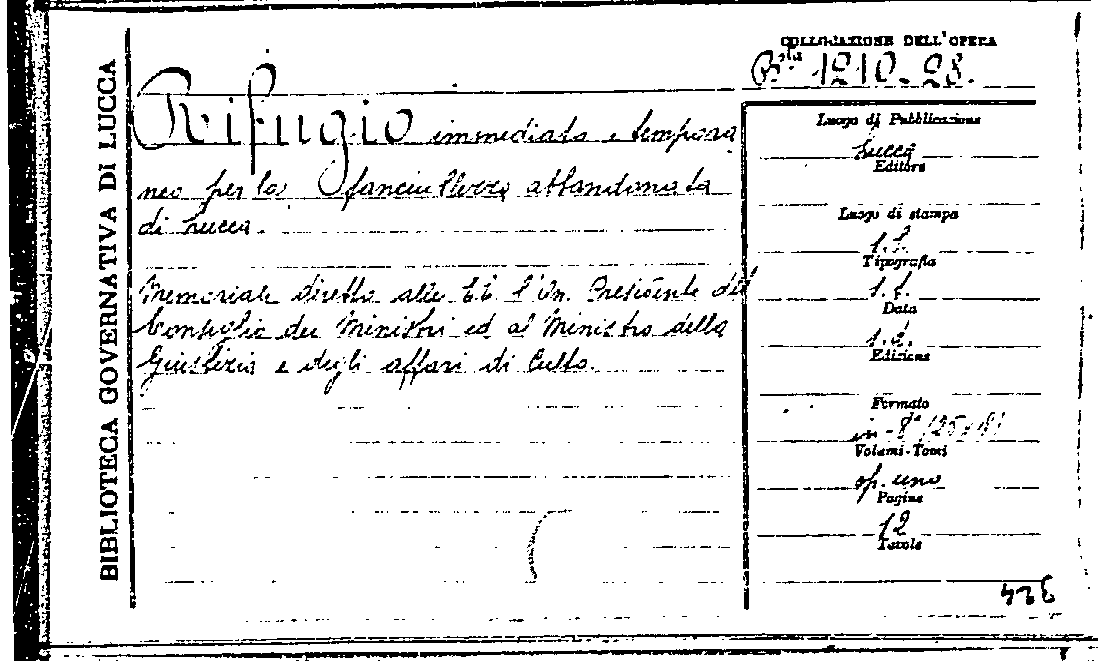 BIBLIOTECA GOVERNATIVA DI LUCCA
COLLOCAZIONE DELL'OPERA
B.ta 1210-28.
Rifugio immediato e tempora
neo per la fanciullezza abbandonata
di Lucca.
Memoriale diretto alle EE l'On. Presidente del
Consiglio dei Ministri ed al Ministro della
Giustizia e degli affari di Culto.
Luogo di Pubblicazione
Lucca
Editore
Luogo di stampa
s.l.
Tipografia
s.t.
Data
s.d.
Edizione
Formato
in-8°
Volumi-Tomi
op. uno
Pagine
12
Tavole